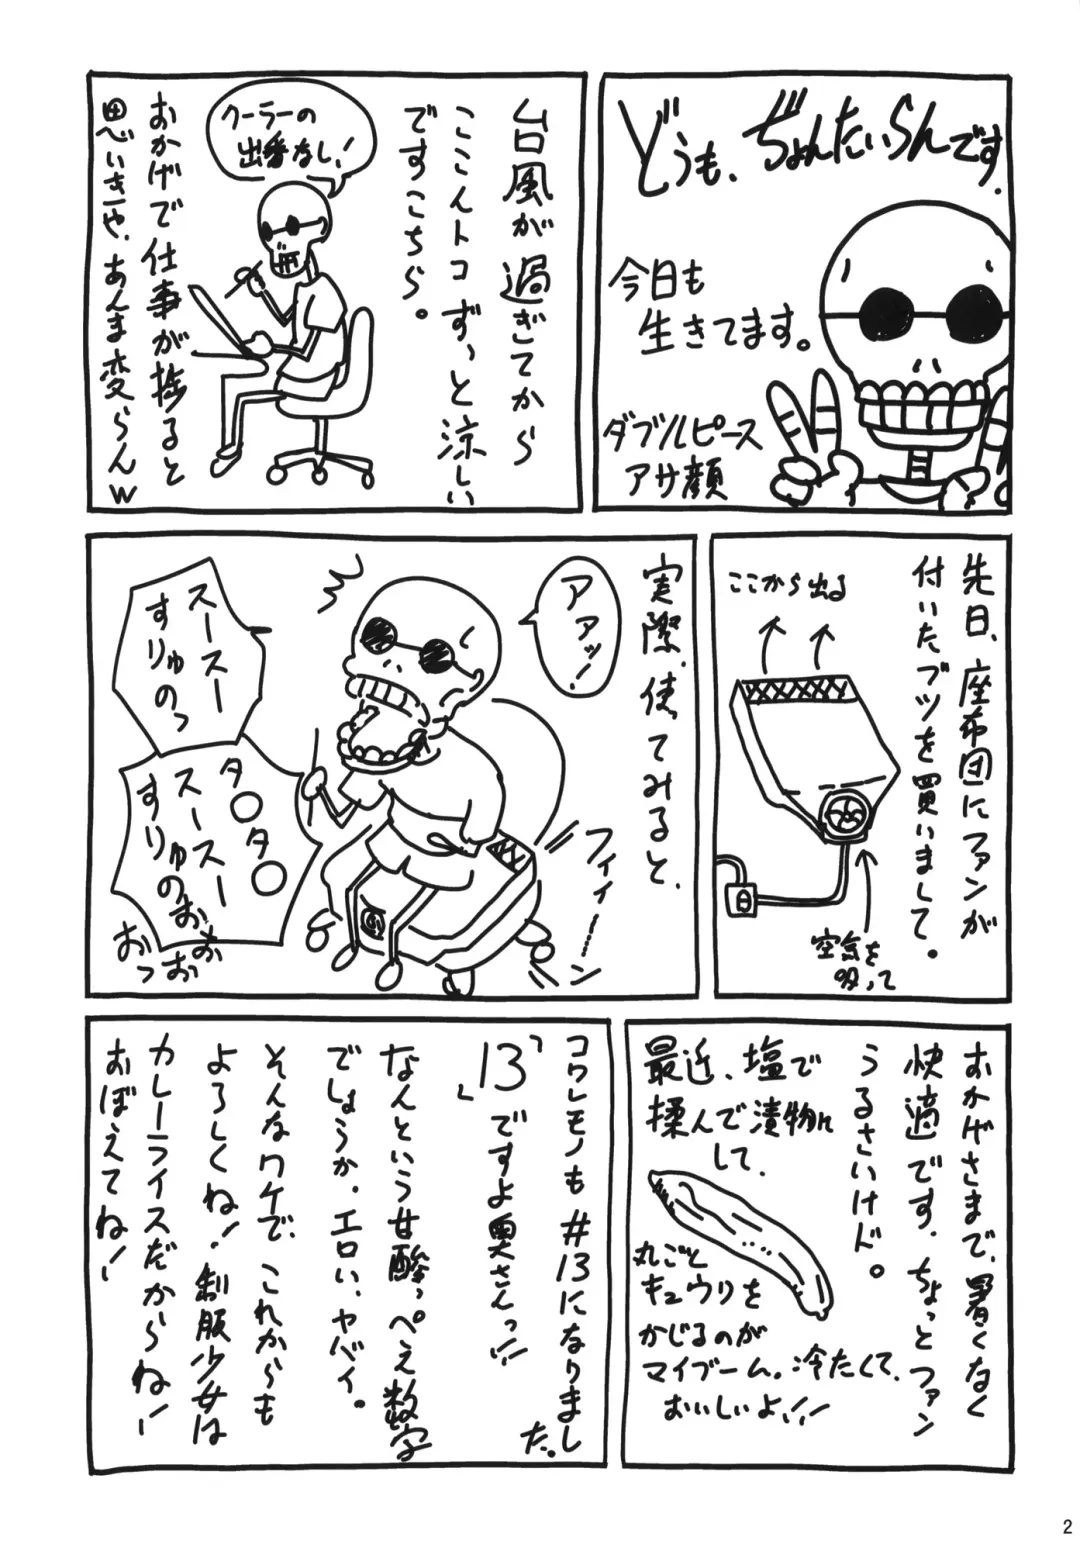 どうも、ぢょんたいらんです。
今日も
生きてます。
ダブルピース
アサ顔
台風が過ぎてから
ここんトコずっと涼しい
ですこちら。
クーラーの
出番なし!
おかげで仕事が捗ると
思いきや、あんま変らんw
先日、座布団にファンが
付いたブツを買いまして。
ここから出る
空気を
吸って
実際、使ってみると、
アアッ!
フィィーーン
スースー
すりゅのっ
タ〇タ〇
スースー
すりゅのおお
おっおお
おかげさまで、暑くなく
快適です。ちょっとファン
うるさいけド。
最近、塩で
揉んで漬物に
して、
丸ごと
キュウリを
かじるのが
マイブーム。冷たくて、
おいしいよ!!
コワレモノも#13になりました。
「13」ですよ奥さんっ!!
なんという甘酸っぺえ数字
でしょうか。エロい、ヤバイ。
そんなワケで、これからも
よろしくね!制服少女は
カレーライスだからね!
おぼえてね!
2